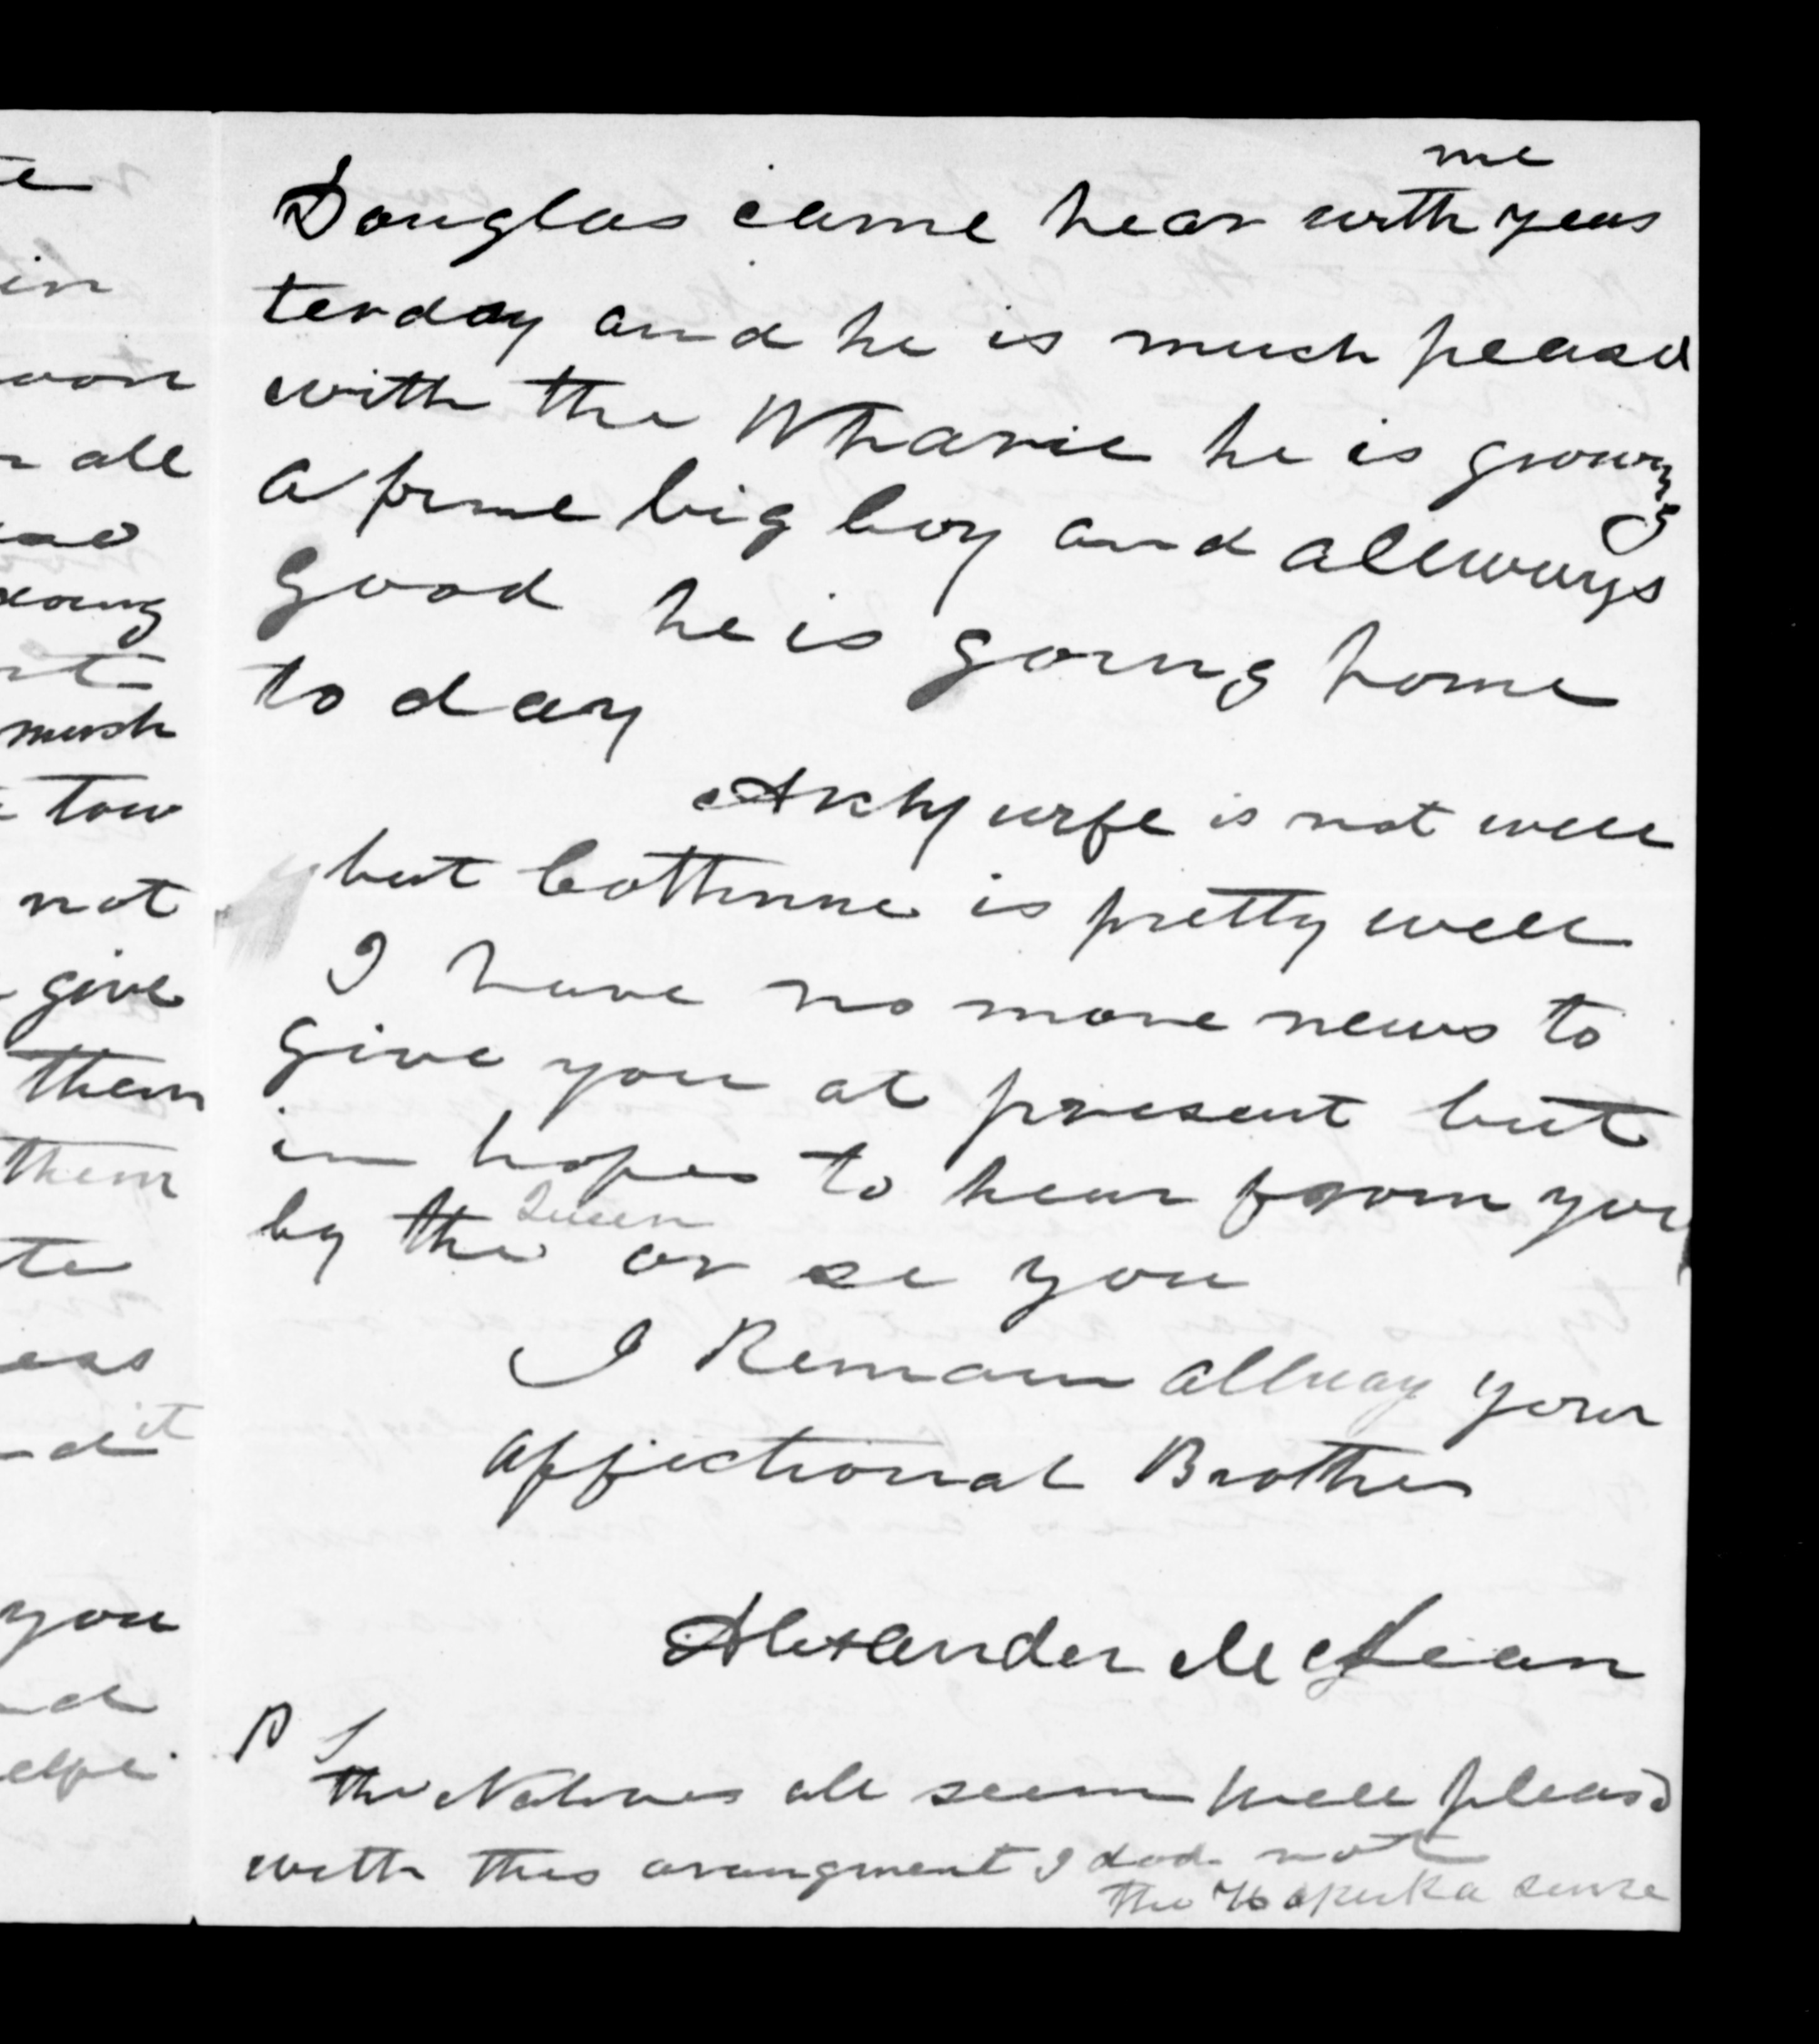 te
in
all
doing
much
tow
not
give
them
them
te
it
you
me
Douglas came hear with yeas
terday and he is much peasd
with the Wharie he is growing
a fine big boy and allways
good he is going home
to day
Archy wife is not well
but Cothrine is pretty well
I have no more news to
give you at present but
in hopes to hear from you
by the Queen or se you
I Remain allway your
affectionat Brother
Alexander McLean
P S
the Natives all seem well pleasd
with this arangment I dod not
the Hapuka sinse